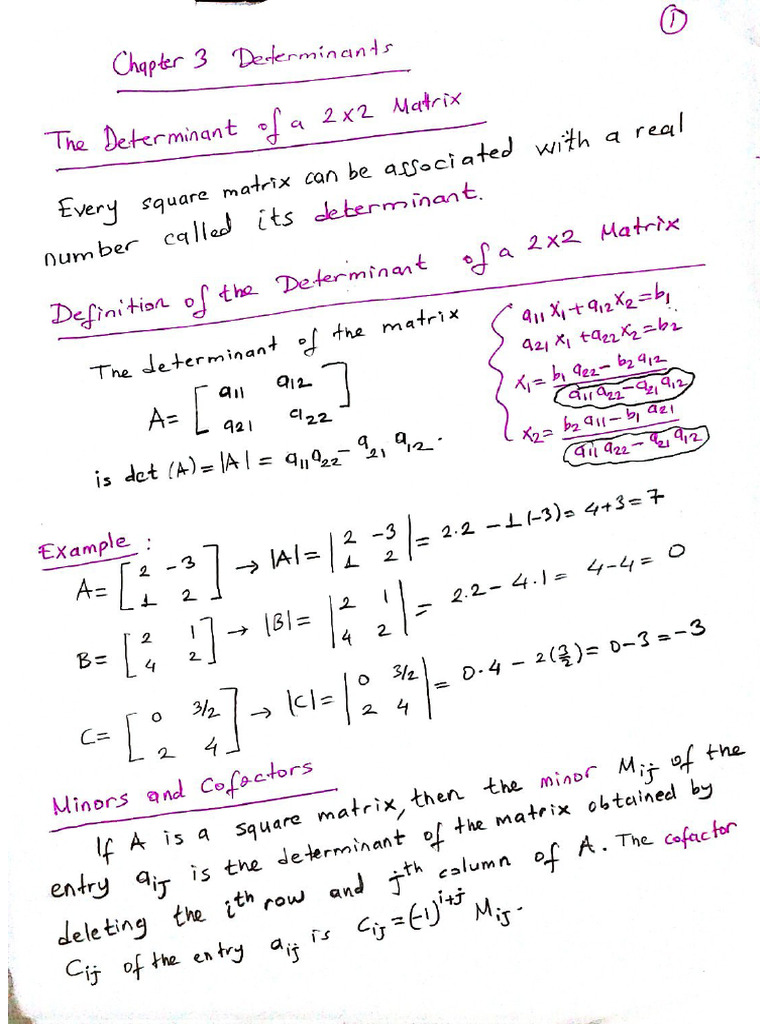 ①
Chapter 3 Determinants
The Determinant of a 2x2 Matrix
Every square matrix can be associated with a real
number called its determinant.
Definition of the Determinant of a 2x2 Matrix
The determinant of the matrix
A= [ a11 a12
a21 a22 ]
is det (A) = |A| = a11a22 - a21 a12.
{ a11 x1 + a12 x2 = b1
a21 x1 + a22 x2 = b2
x1 = b1 a22 - b2 a12
a11 a22 - a21 a12
x2 = b2 a11 - b1 a21
a11 a22 - a21 a12
Example :
A= [ 2 -3
1 2 ] → |A| = | 2 -3
1 2 | = 2.2 - 1(-3) = 4+3 = 7
B= [ 2 1
4 2 ] → |B| = | 2 1
4 2 | = 2.2 - 4.1 = 4-4 = 0
C= [ 0 3/2
2 4 ] → |C| = | 0 3/2
2 4 | = 0.4 - 2(3/2) = 0-3 = -3
Minors and Cofactors
If A is a square matrix, then the minor Mij of the
entry aij is the determinant of the matrix obtained by
deleting the ith row and jth column of A. The cofactor
Cij of the entry aij is Cij = (-1)^i+j Mij.